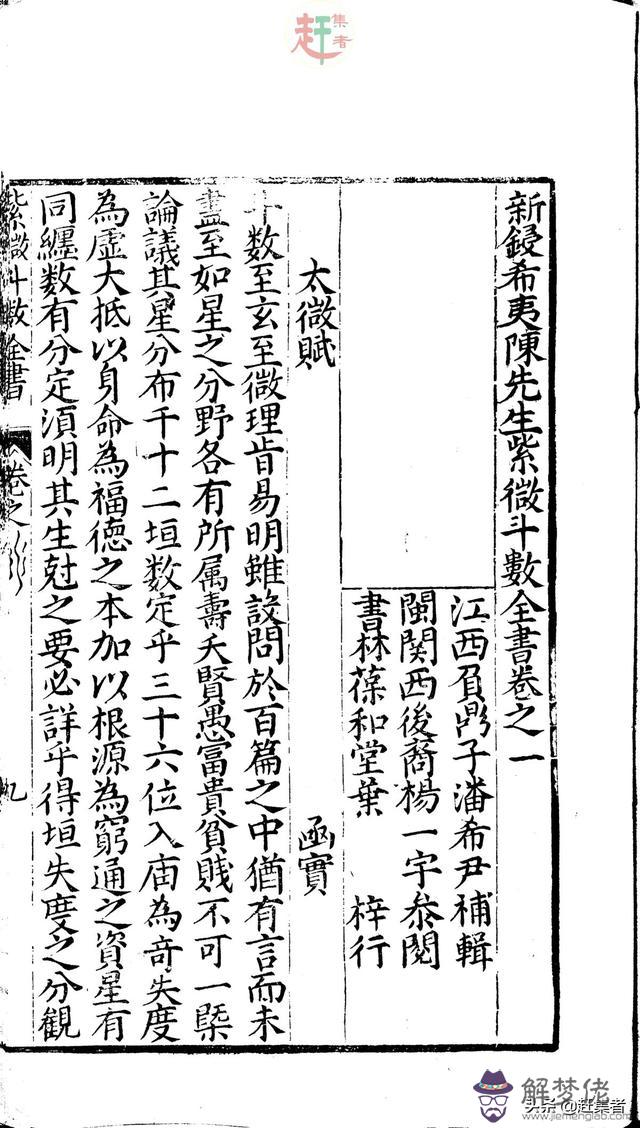 赶集者
新鋟希夷陳先生紫微斗數全書卷之一
江西負鼎子潘希尹補輯
閩関西後裔楊一宇叅閱
書林葆和堂葉 梓行
太微賦 函實
斗数至玄至微理旨易明雖設問於百篇之中猶有言而未
盡至如星之分野各有所属壽夭賢愚富貴貧賤不可一槩
論議其星分布千十二垣数定乎三十六位入庙為奇失度
為虛大抵以身命為福德之本加以根源為窮通之資星有
同纏数有分定須明其生尅之要必詳乎得垣失度之分觀
紫微斗數全書 卷之一 九
解梦佬
www.jiemenglab.com
头条@赶集者